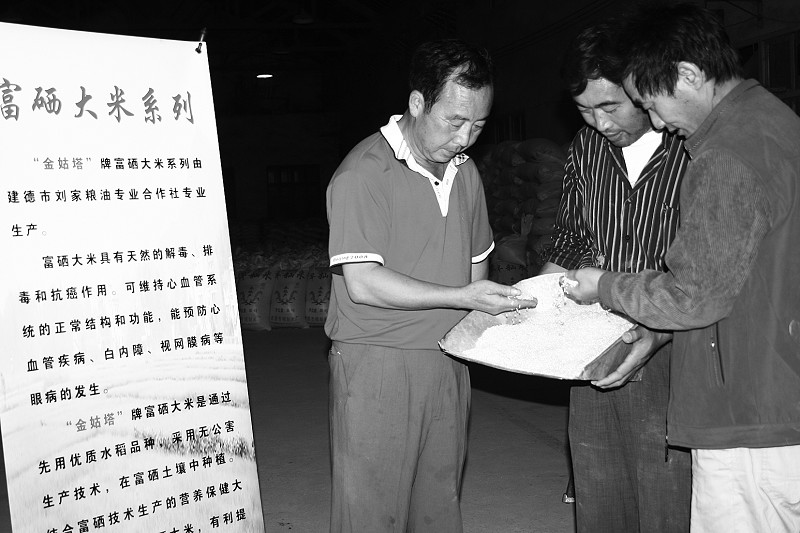 富硒大米系列
“金姑塔”牌富硒大米系列由
建德市刘家粮油专业合作社专业
生产。
富硒大米具有天然的解毒、排
毒和抗癌作用。可维持心血管系
统的正常结构和功能，能预防心
血管疾病、白内障、视网膜病等
眼病的发生。
“金姑塔”牌富硒大米是通过
先用优质水稻品种，采用无公害
生产技术，在富硒土壤中种植。
结合富硒技术生产的营养保健大
大米，有利提